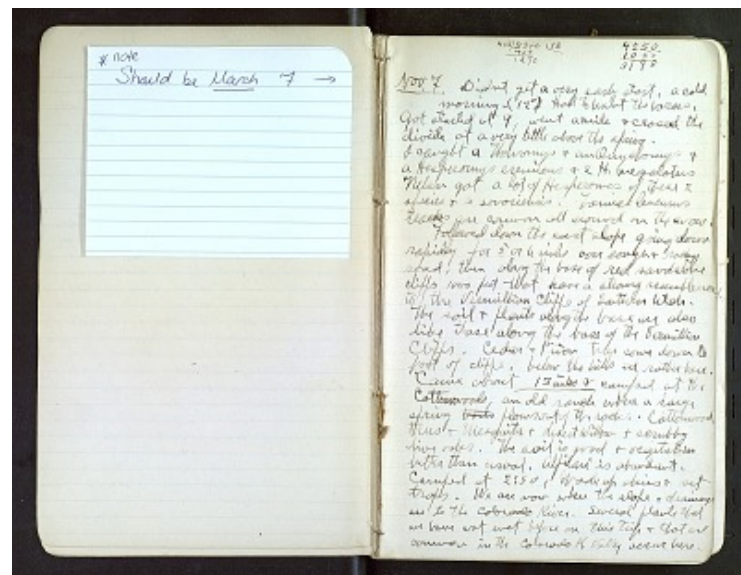 * note
Should be March 7 →
4250
Nov 7. Didn't get a very early start, a cold
morning & 12° had to hunt the horses.
Got started at 9, went a mile & crossed the
divide at a very little above the spring.
I caught a Thomomys & an Onychomys &
a Hesperomys eremicus & 2 H.
Nelson got a lot of Hesperomys of these 2
species & a sonoriensis.
are common all around on the
Followed down the west slope going down
rapidly for 5 or 6 miles over rough & rocky
road, then along the base of red sandstone
cliffs 1000 feet that have a strong resemblance
to the Vermillion Cliffs of Southern Utah.
The soil & plants along the base are also
like those along the base of the Vermillion
Cliffs. Cedar & Pinon come down to
foot of cliffs, below the hills are rather bare.
Came about 15 miles & camped at the
Cottonwoods, an old ranch where a large
spring flows out of the rocks. Cottonwood
trees & Mesquite & desert willow & scrubby
live oaks. The soil is good & vegetation
better than usual. Alfileria is abundant.
Camped at 2550. Made up skins & set
traps. We are now where the slope & drainage
are to the Colorado River. Several plants that
we have not met before on this trip & that are
common in the Colorado R Valley occur here.